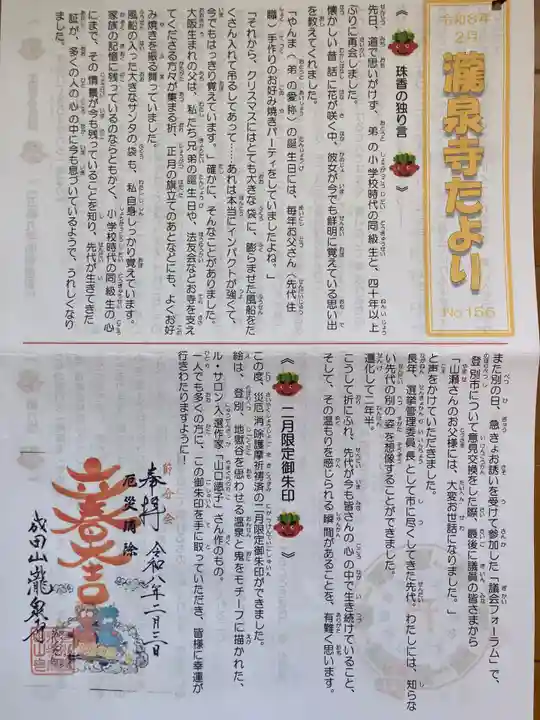 令和8年
2月
瀧泉寺だより
No156
《 珠香の独り言 》
先日、道で思いがけず、弟の小学校時代の同級生と、四十年以上
ぶりに再会しました。
懐かしい昔話に花が咲く中、彼女が今でも鮮明に覚えている思い出
を教えてくれました。
「やんま（弟の愛称）の誕生日には、毎年お父さん（先代住
職）手作りのお好み焼きパーティをしていましたよね。」
「それから、クリスマスにはとても大きな袋に、膨らませた風船をた
くさん入れて吊るしてあって……あれは本当にインパクトが強くて、
今でもはっきり覚えています。」確かに、そんなことがありました。
大阪生まれの父は、私たち兄弟の誕生日や、法友会などお寺を支え
てくださる方々が集まる折、正月の旗立てのあとなどにも、よくお好
み焼きを振る舞っていました。
風船の入った大きなサンタの袋も、私自身しっかり覚えています。
家族の記憶に残っているのならともかく、小学校時代の同級生の心
にまで、その情景が今も残っていることを知り、先代が生きてきた
証が、多くの人の心の中に今も息づいているようで、うれしくなり
ました。
また別の日、急きょお誘いを受けて参加した「議会フォーラム」で、
登別市について意見交換をした際、最後に議員の皆さまから
「山瀬さんのお父様には、大変お世話になりました。」
と声をかけていただきました。
長年、選挙管理委員長として市に尽くしてきた先代。わたしには、知らな
い先代の別の姿を想像することができました。
遷化して二年半。
こうして折にふれ、先代が今も皆さんの心の中で生き続けていること、
そして、その温もりを感じられる瞬間があることを、有難く思います。
《 二月限定御朱印 》
この度、災厄消除護摩祈祷済の二月限定御朱印ができました。
絵は、登別、地獄谷を思わせる温泉と鬼をモチーフに描かれた、
ル・サロン入選作家「山口徳子」さん作のもの。
一人でも多くの方に、この御朱印を手に取っていただき、皆様に幸運が
行きわたりますように！
節分会
奉拝 令和八年二月三日
厄災消除
立春大吉
成田山瀧泉寺